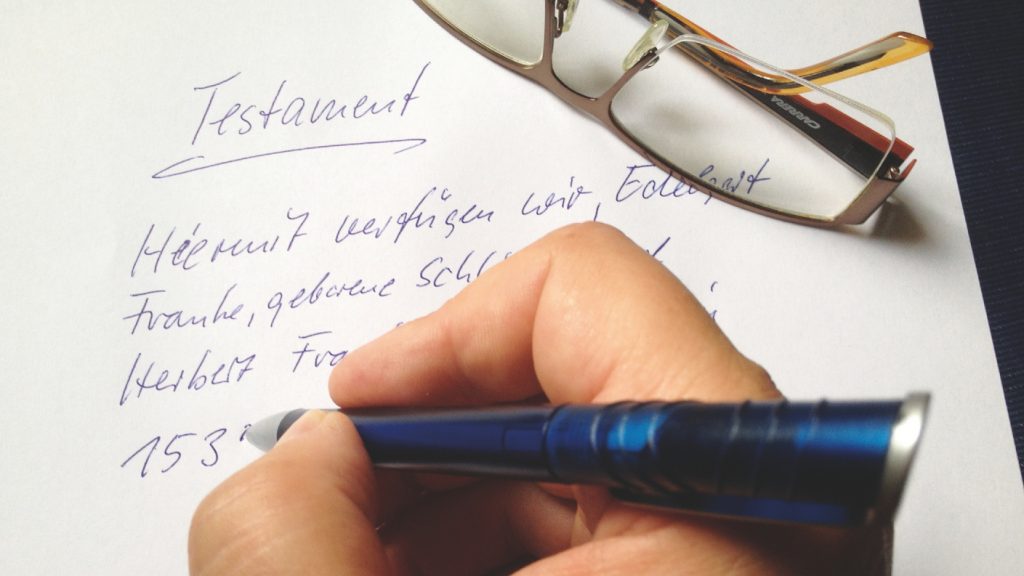 Testament
Hiermit verfügen wir, Edelgart
Franke, geborene
Herbert
153
CARRERA